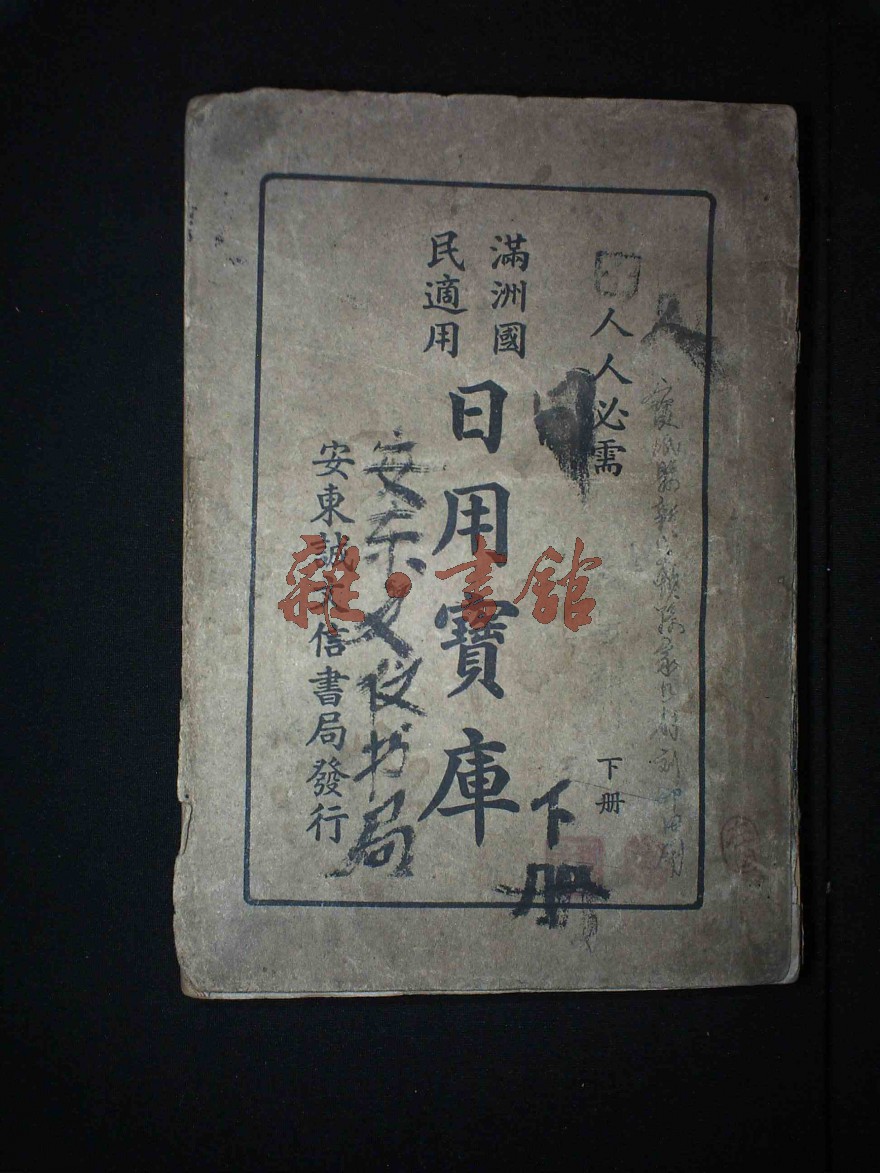 人人必需
下册
滿洲國
民適用
日用寶庫
下册
安东文
书局
安東誠文信書局發行
雜·書館